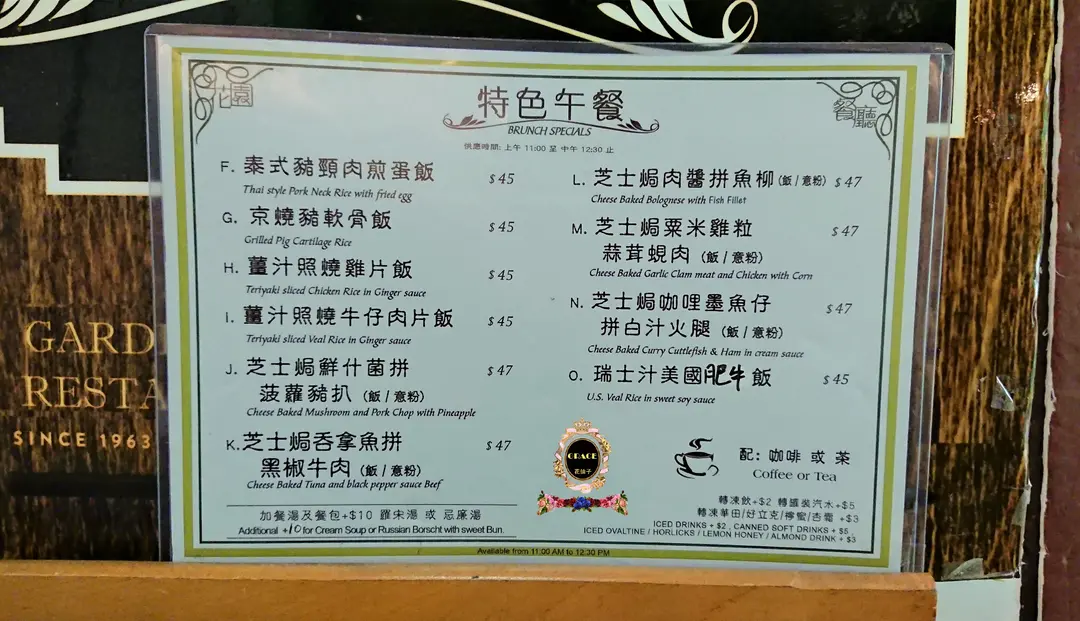 花園
餐廳
特色午餐
BRUNCH SPECIALS
供應時間: 上午 11:00 至 中午 12:30 止
F. 泰式豬頸肉煎蛋飯 $45
Thai style Pork Neck Rice with fried egg
G. 京燒豬軟骨飯 $45
Grilled Pig Cartilage Rice
H. 薑汁照燒雞片飯 $45
Teriyaki sliced Chicken Rice in Ginger sauce
I. 薑汁照燒牛仔肉片飯 $45
Teriyaki sliced Veal Rice in Ginger sauce
J. 芝士焗鮮什菌拼 $47
菠蘿豬扒 (飯/意粉)
Cheese Baked Mushroom and Pork Chop with Pineapple
K. 芝士焗吞拿魚拼 $47
黑椒牛肉 (飯/意粉)
Cheese Baked Tuna and black pepper sauce Beef
加餐湯及餐包+$10 羅宋湯 或 忌廉湯
Additional +10 for Cream Soup or Russian Borscht with sweet Bun.
L. 芝士焗肉醬拼魚柳(飯/意粉) $47
Cheese Baked Bolognese with Fish Fillet
M. 芝士焗粟米雞粒 $47
蒜茸蜆肉 (飯/意粉)
Cheese Baked Garlic Clam meat and Chicken with Corn
N. 芝士焗咖哩墨魚仔 $47
拼白汁火腿 (飯/意粉)
Cheese Baked Curry Cuttlefish & Ham in cream sauce
O. 瑞士汁美國肥牛飯 $45
U.S. Veal Rice in sweet soy sauce
GRACE
花仙子
配: 咖啡 或 茶
Coffee or Tea
轉凍飲+$2 轉罐裝汽水+$5
轉凍華田/好立克/檸蜜/杏霜 +$3
ICED DRINKS + $2 , CANNED SOFT DRINKS + $5
ICED OVALTINE / HORLICKS / LEMON HONEY / ALMOND DRINK + $3
Available from 11:00 AM to 12:30 PM
GARD
RESTA
SINCE 1963